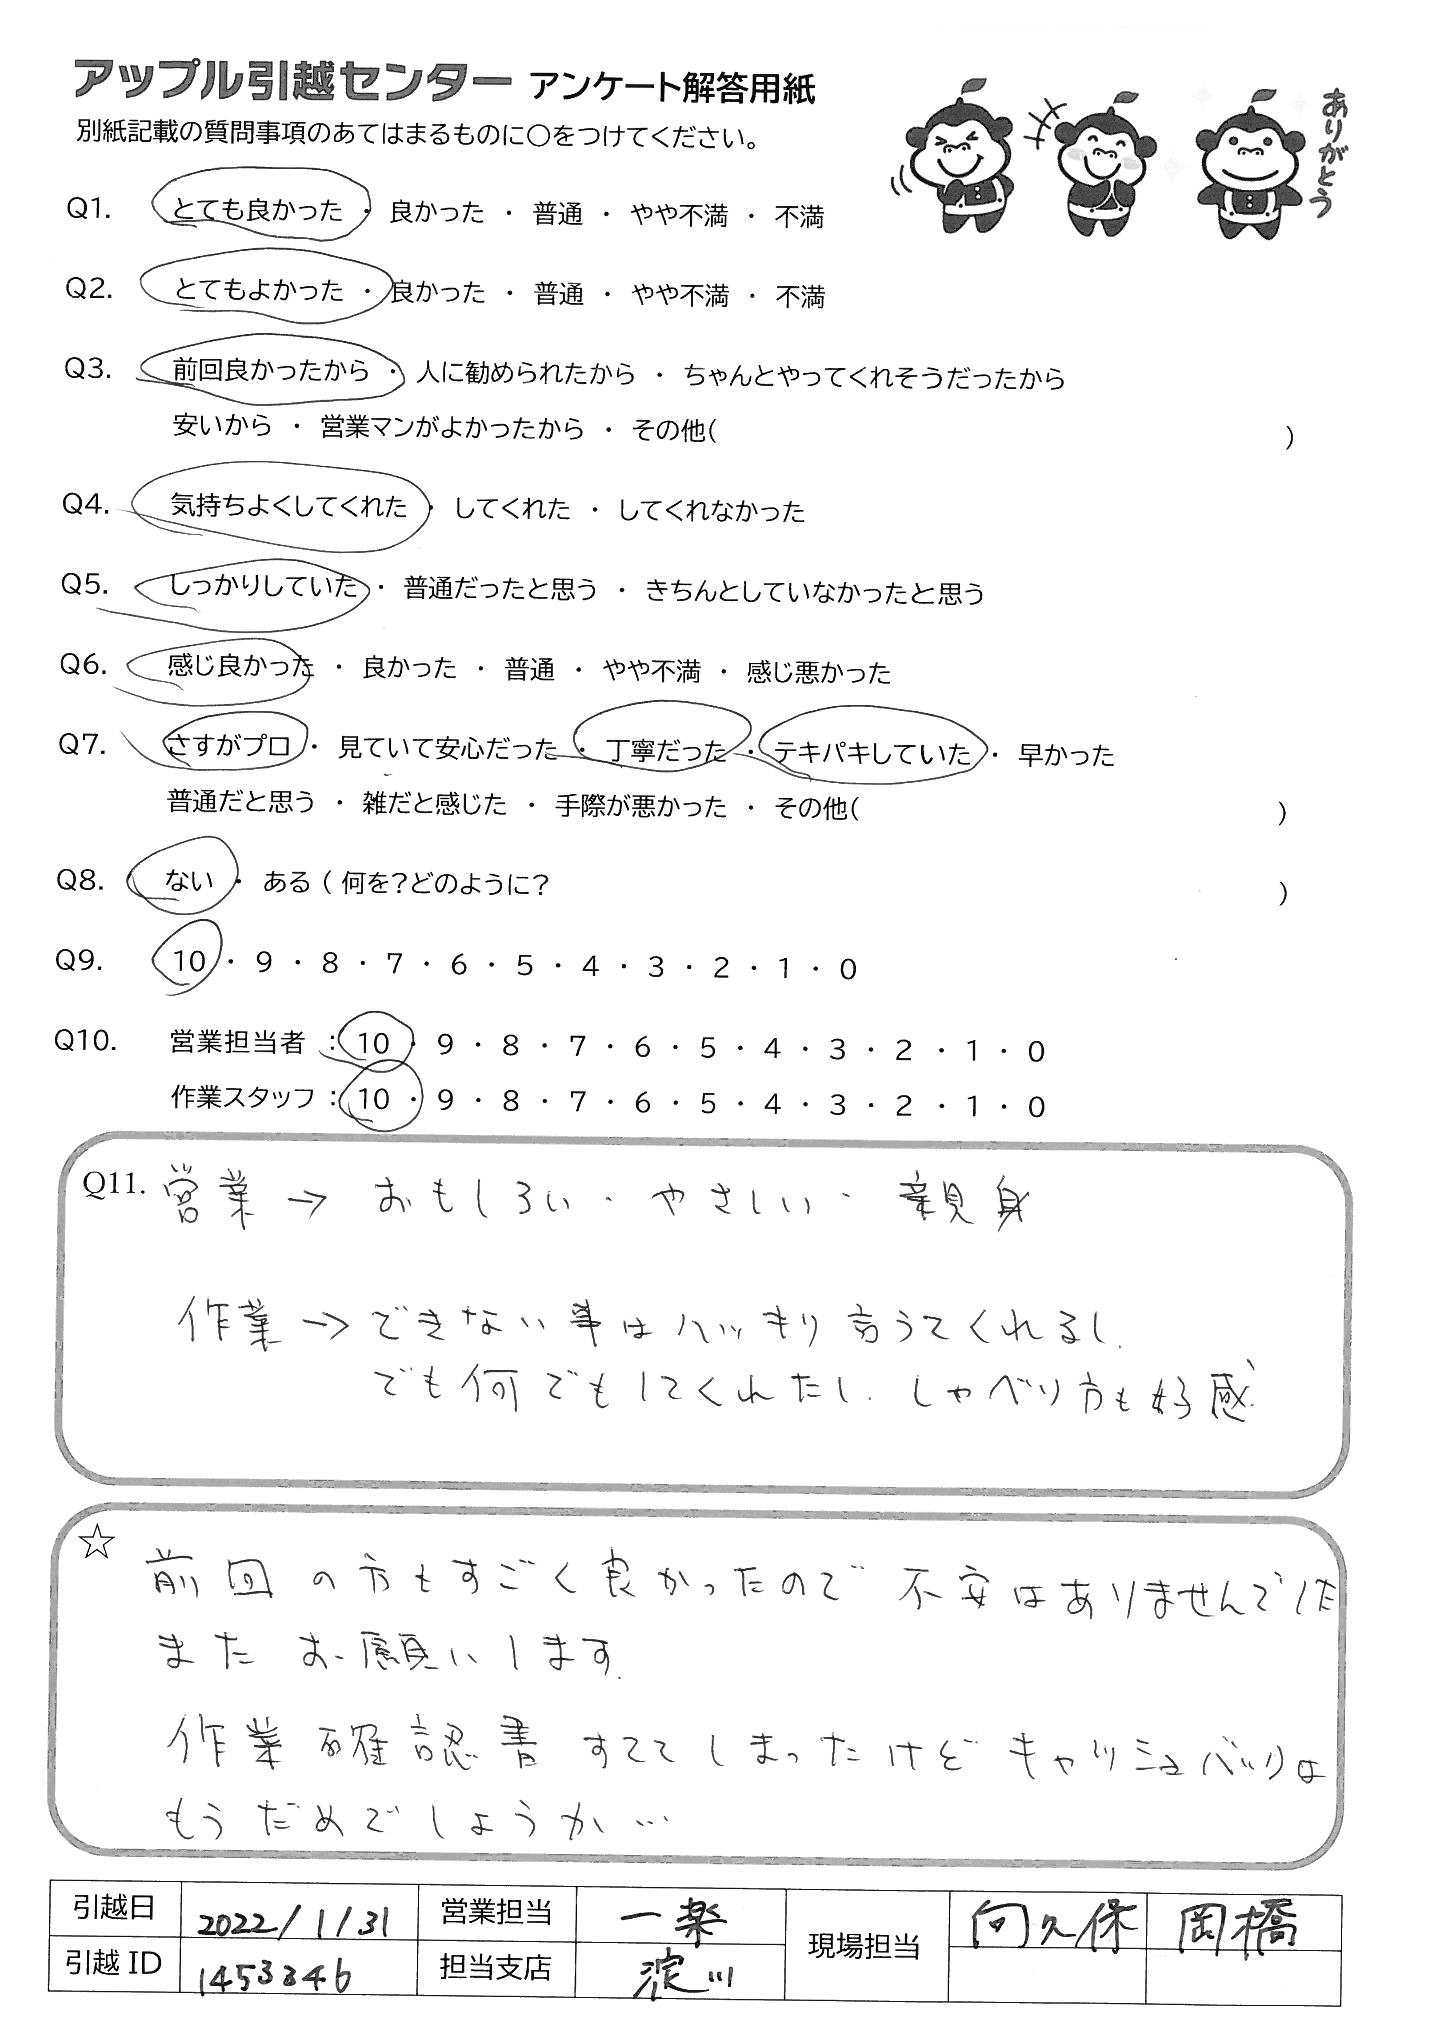 アップル引越センター アンケート解答用紙
別紙記載の質問事項のあてはまるものに〇をつけてください。
ありがとう
Q1. とても良かった ・ 良かった ・ 普通 ・ やや不満 ・ 不満
Q2. とてもよかった ・ 良かった ・ 普通 ・ やや不満 ・ 不満
Q3. 前回良かったから ・ 人に勧められたから ・ ちゃんとやってくれそうだったから
安いから ・ 営業マンがよかったから ・ その他( )
Q4. 気持ちよくしてくれた ・ してくれた ・ してくれなかった
Q5. しっかりしていた ・ 普通だったと思う ・ きちんとしていなかったと思う
Q6. 感じ良かった ・ 良かった ・ 普通 ・ やや不満 ・ 感じ悪かった
Q7. さすがプロ ・ 見ていて安心だった ・ 丁寧だった ・ テキパキしていた ・ 早かった
普通だと思う ・ 雑だと感じた ・ 手際が悪かった ・ その他( )
Q8. ない ・ ある ( 何を?どのように? )
Q9. 10 ・ 9 ・ 8 ・ 7 ・ 6 ・ 5 ・ 4 ・ 3 ・ 2 ・ 1 ・ 0
Q10. 営業担当者 : 10 ・ 9 ・ 8 ・ 7 ・ 6 ・ 5 ・ 4 ・ 3 ・ 2 ・ 1 ・ 0
作業スタッフ : 10 ・ 9 ・ 8 ・ 7 ・ 6 ・ 5 ・ 4 ・ 3 ・ 2 ・ 1 ・ 0
Q11. 営業 → おもしろい・やさしい・親身
作業 → できない事はハッキリ言うてくれるし、
でも何でもしてくれたし、しゃべり方も好感
☆ 前回の方もすごく良かったので不安はありませんでした
またお願いします。
作業確認書すててしまったけどキャッシュバックは
もうだめでしょうか…
引越日 2022/1/31 営業担当 一楽 現場担当 向久保 岡橋
引越ID 1453346 担当支店 淀川